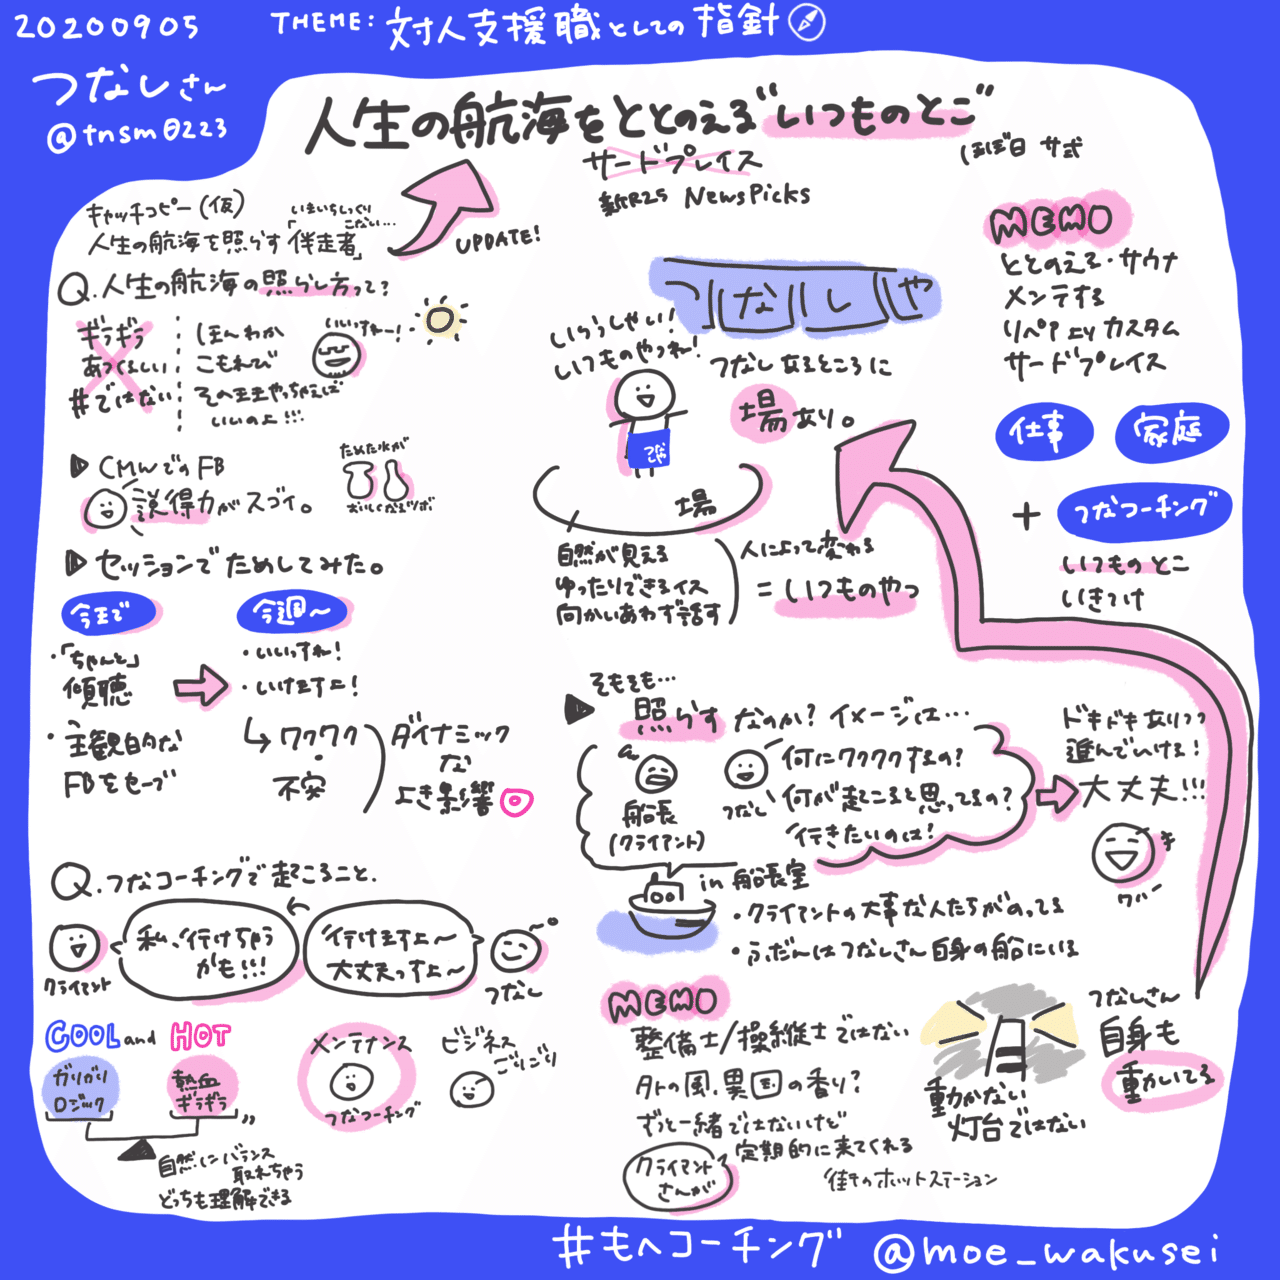 20200905
THEME: 対人支援職としての指針
つなしさん
@tnsm0223
人生の航海をととのえる"いつものとこ"
サードプレイス
新R25 NewsPicks
ほぼ日 サ式
キャッチコピー(仮)
いまいちしっくり
こない…
人生の航海を照らす「伴走者」
UPDATE!
Q.人生の航海の照らし方って?
ギラギラ
あつくるしい
#ではない
ほんわか
こもれび
そのままやっちゃえば
いいのよ!!!
いいっすねー!
▷CMWでのFB
説得力がスゴイ。
ためた水が
おいしくなるツボ
▷セッションでためしてみた。
今まで
・「ちゃんと」
傾聴
・主観的な
FBをセーブ
今週〜
・いいっすね!
・いけますよ!
↳ワクワク
・
不安
ダイナミック
な
よき影響
Q.つなコーチングで起こること.
クライアント
私、行けちゃう
かも!!!
行けますよ〜
大丈夫っすよ〜
つなし
COOL and HOT
ガリガリ
ロジック
熱血
ギラギラ
自然にバランス
取れちゃう
どっちも理解できる
メンテナンス
つなコーチング
ビジネス
ごりごり
つなしや
いらっしゃい!
いつものやつね!
つなしあるところに
場あり。
つなや
場
自然が見える
ゆったりできるイス
向かいあわず話す
人によって変わる
=いつものやつ
MEMO
ととのえる・サウナ
メンテする
リペアよりカスタム
サードプレイス
仕事
家庭
+ つなコーチング
いつものとこ
いきつけ
そもそも…
▶照らすなのか?イメージは…
船長
(クライアント)
つなし
何にワクワクするの?
何が起こると思ってるの?
行きたいのは!
ドキドキありつつ
進んでいける!
大丈夫!!!
ワハー
in 船長室
・クライアントの大事な人たちがのってる
・ふだんはつなしさん自身の船にいる
MEMO
整備士/操縦士ではない
外の風、異国の香り?
ずっと一緒ではないけど
定期的に来てくれる
クライアント
さんが
街のホットステーション
動かない
灯台ではない
つなしさん
自身も
動いてる
#もへコーチング @moe_wakusei